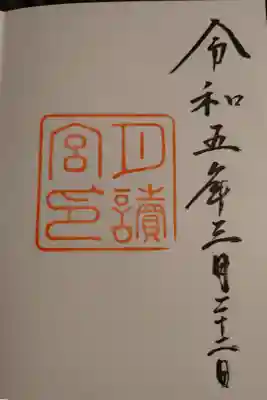 令和五年三月二十二日
月讀
宮印